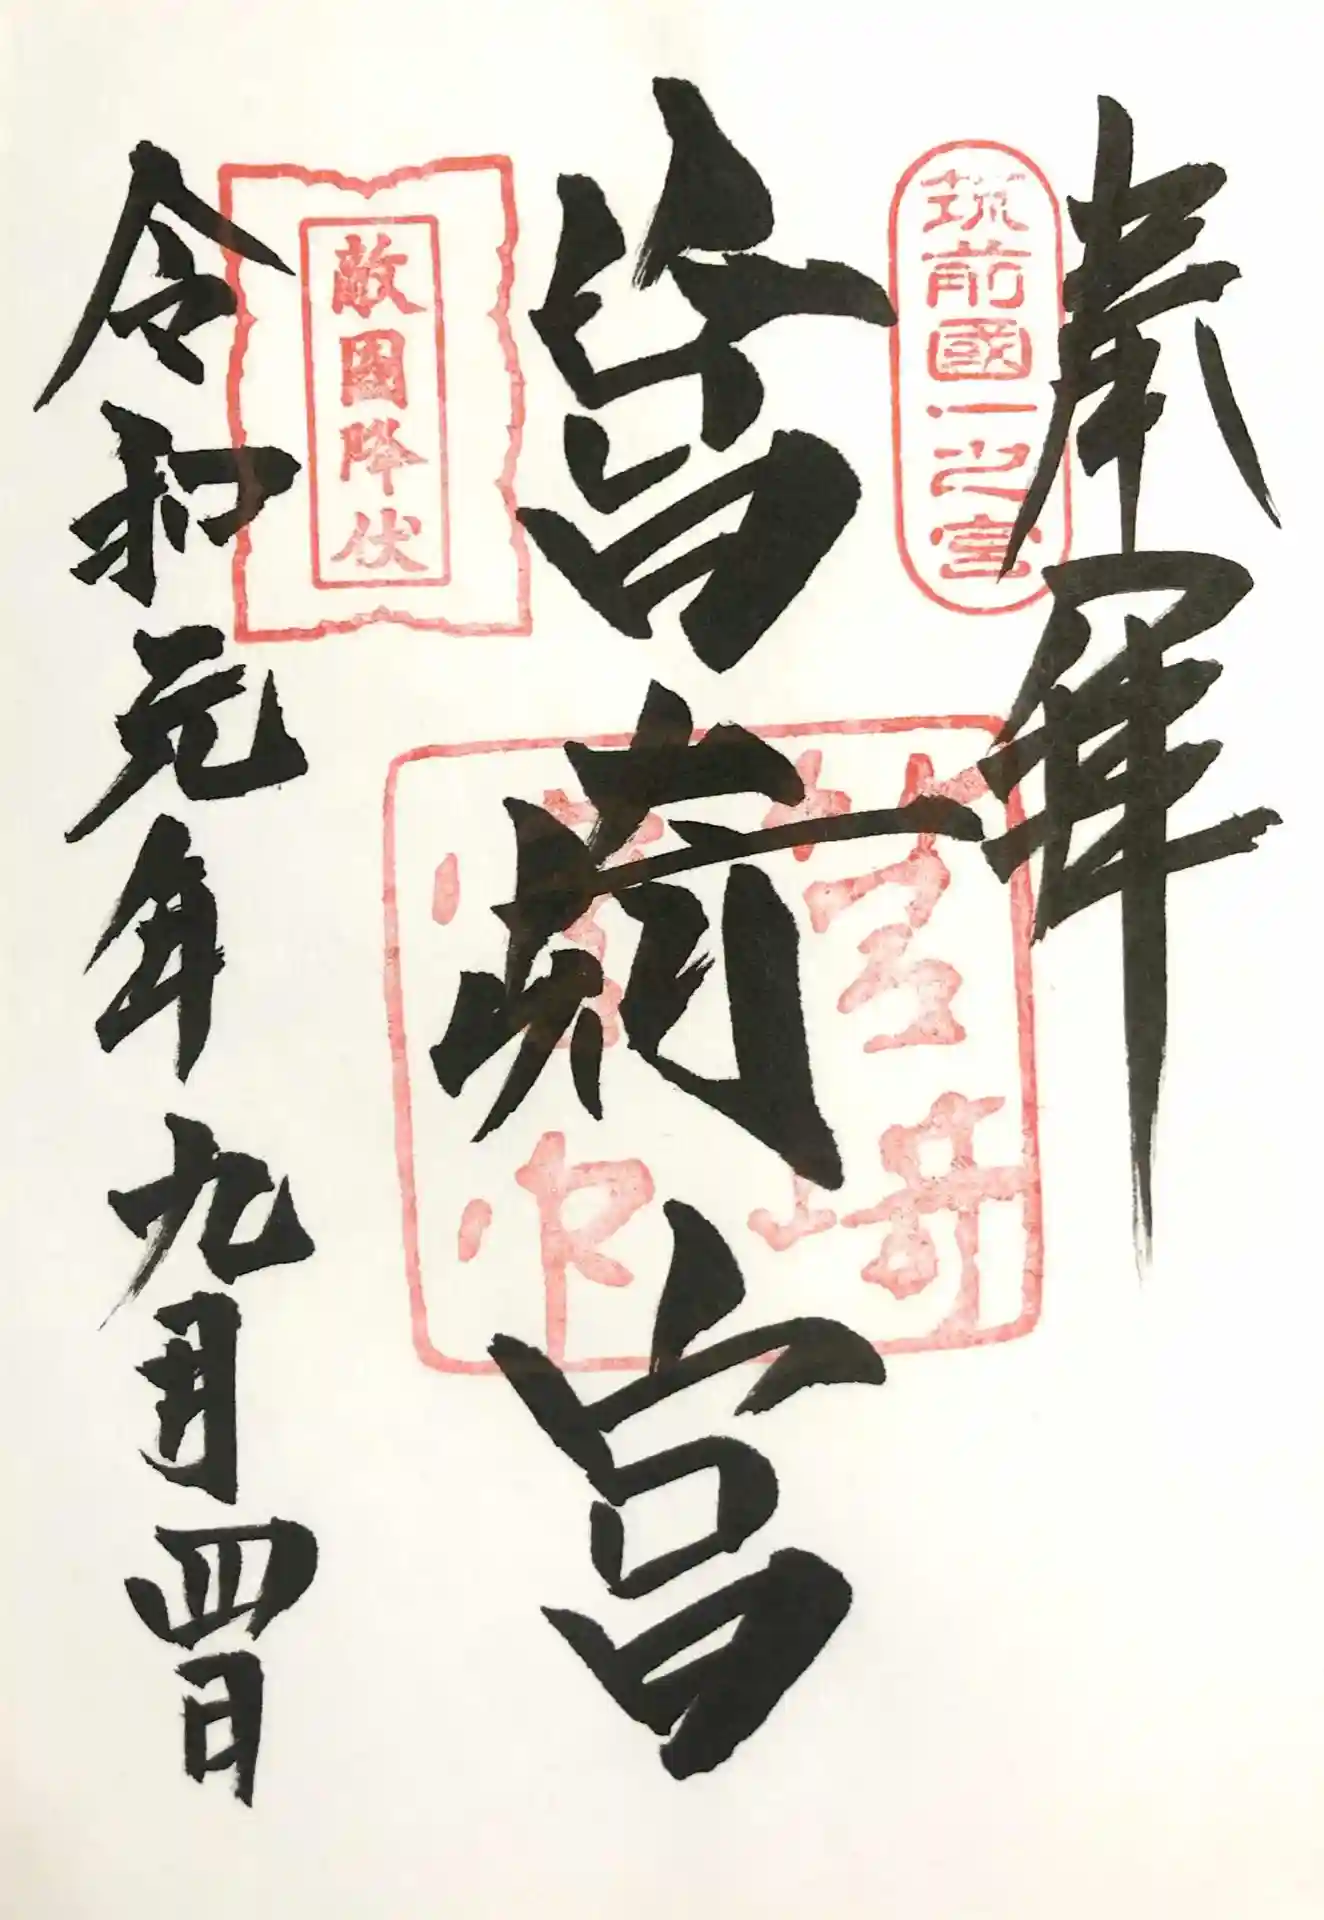 奉拝
筑前國一之宮
筥崎宮
筥崎宮印
敵國降伏
令和元年九月四日